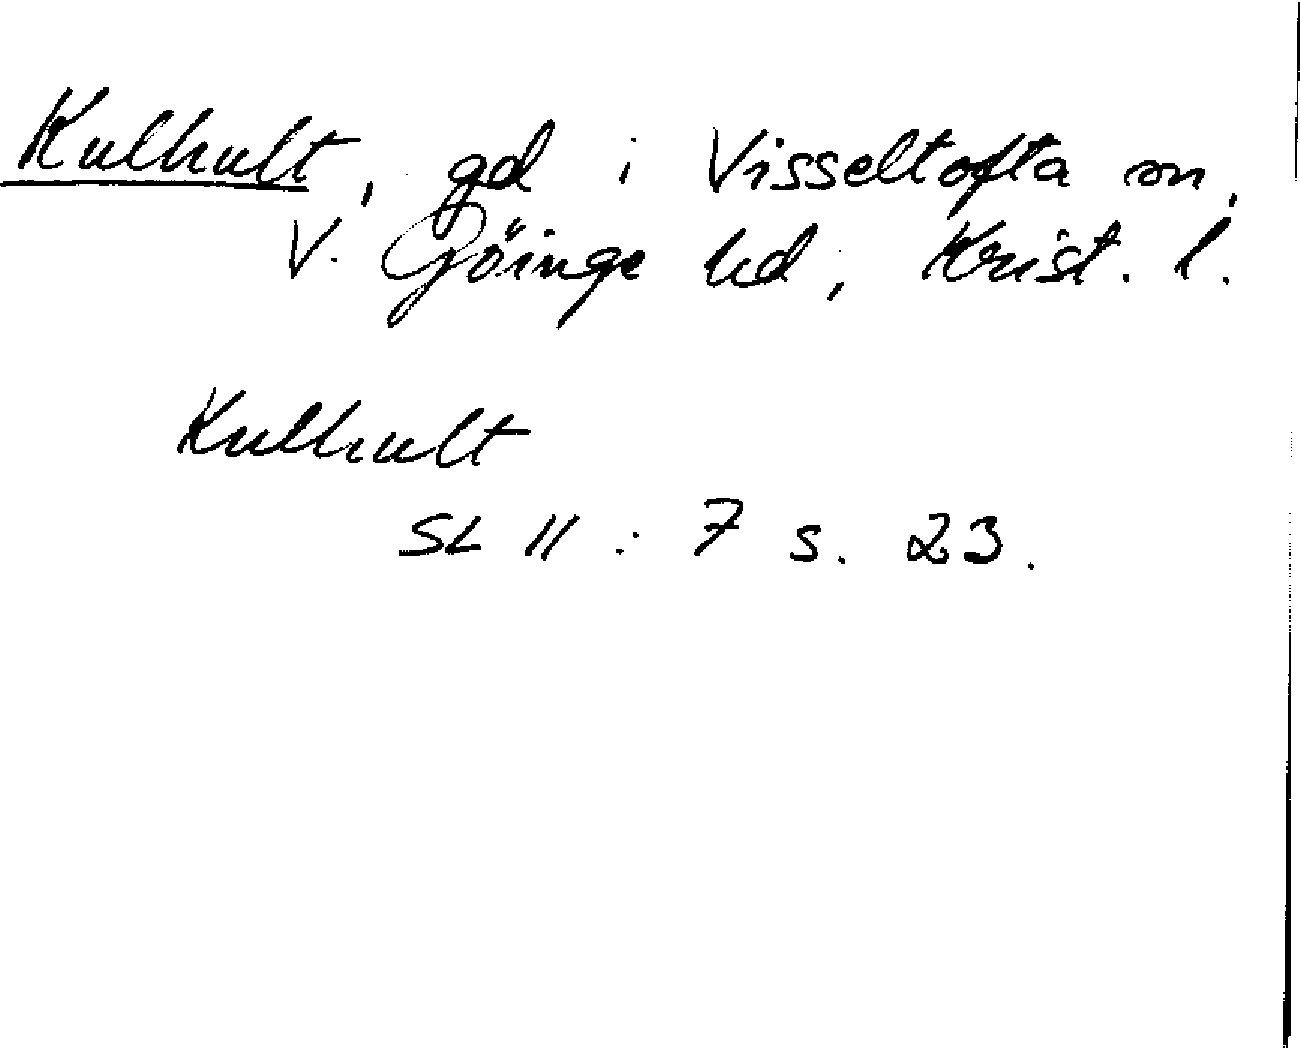 Kulhult, gd i Visseltofta sn,
V. Göinge hd, Krist. l.
Kulhult
SL II : 7 s. 23.